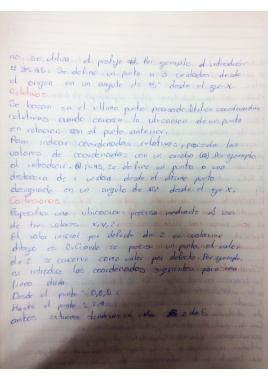 no se utiliza el prefijo #. Por ejemplo, al introducir
# 3<45. Se define un punto a 3 unidades desde
el origen en un angulo de 45° desde el eje X.
Relativas
Se basan en el ultimo punto precisado. Utilice coordenadas
relativas cuando conozca la ubicacion de un punto
en relacion con el punto anterior.
Para indicar coordenadas relativas, preceda los
valores de coordenadas con un arroba (@). Por ejemplo
al introducir @1<45, se define un punto a una
distancia de 1 unidad desde el ultimo punto
designado en un angulo de 45° desde el eje X.
Cartesianas
Especifica una ubicacion precisa mediante el uso
de tres valores: X, Y, Z.
El valor inicial por defecto de Z en cualquier
dibujo es 0. Cuando se precisa un punto, el valor
de Z se conserva como valor por defecto. Por ejemplo,
si introduce las coordenadas siguientes para una
linea dada:
Desde el punto: 0,0,5
Hasta el punto:
ambos extremos tendran un valor Z de 5.